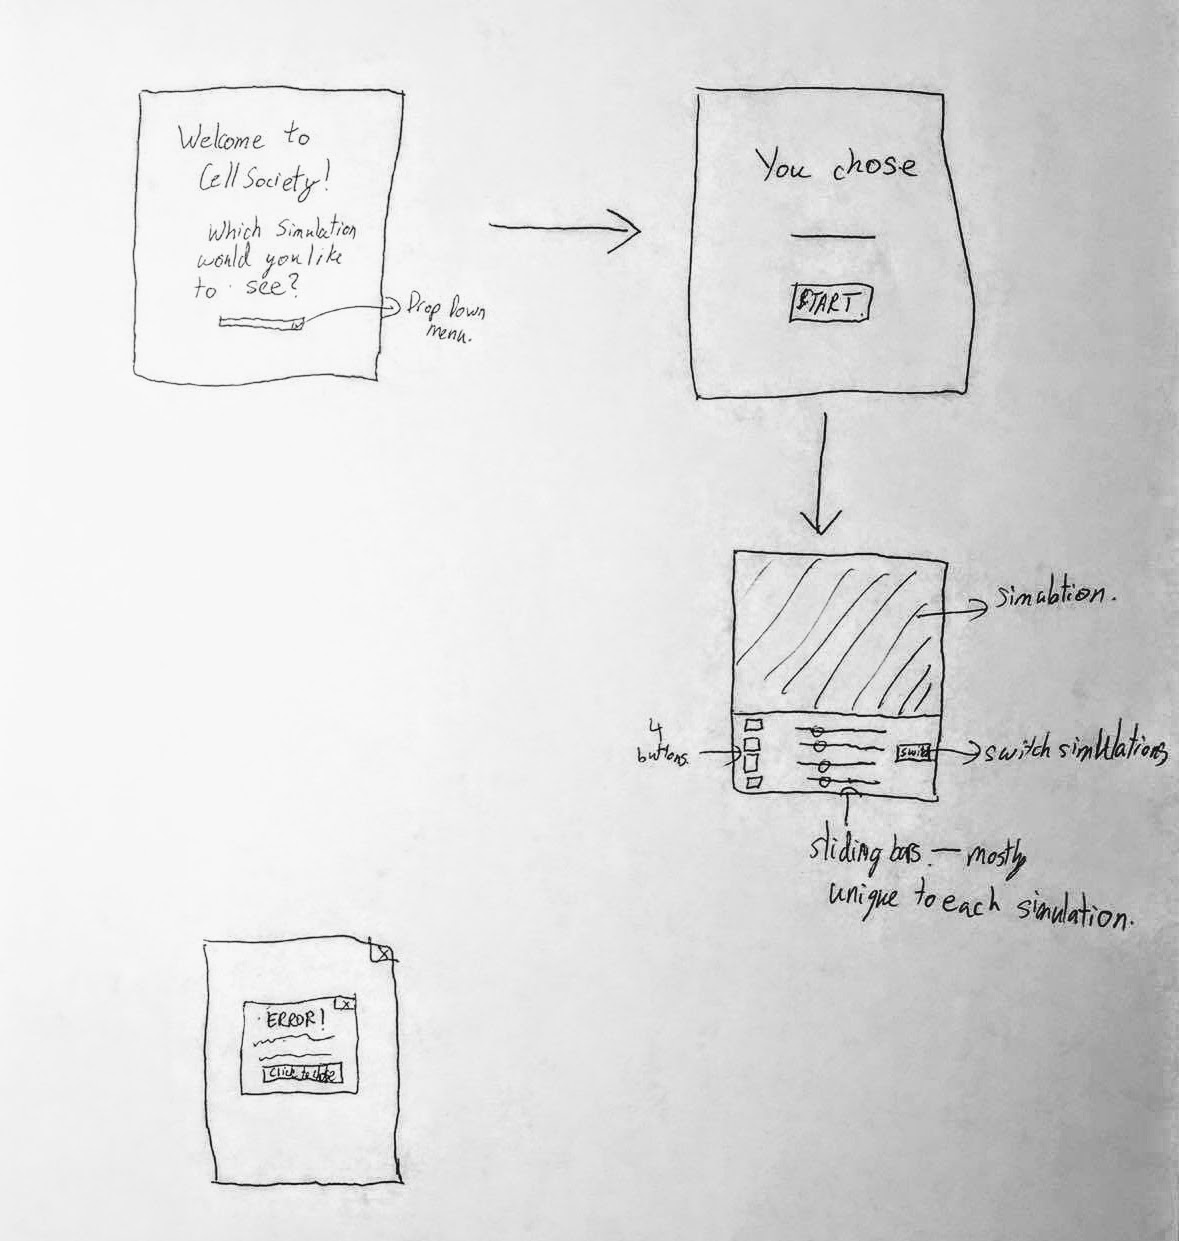 Welcome to
Cell Society!
Which Simulation
would you like
to see?
Drop Down
menu.
You chose
START
simulation.
4
buttons.
switch simulations
sliding bars. — mostly
unique to each simulation.
X
X
ERROR!
Click to close